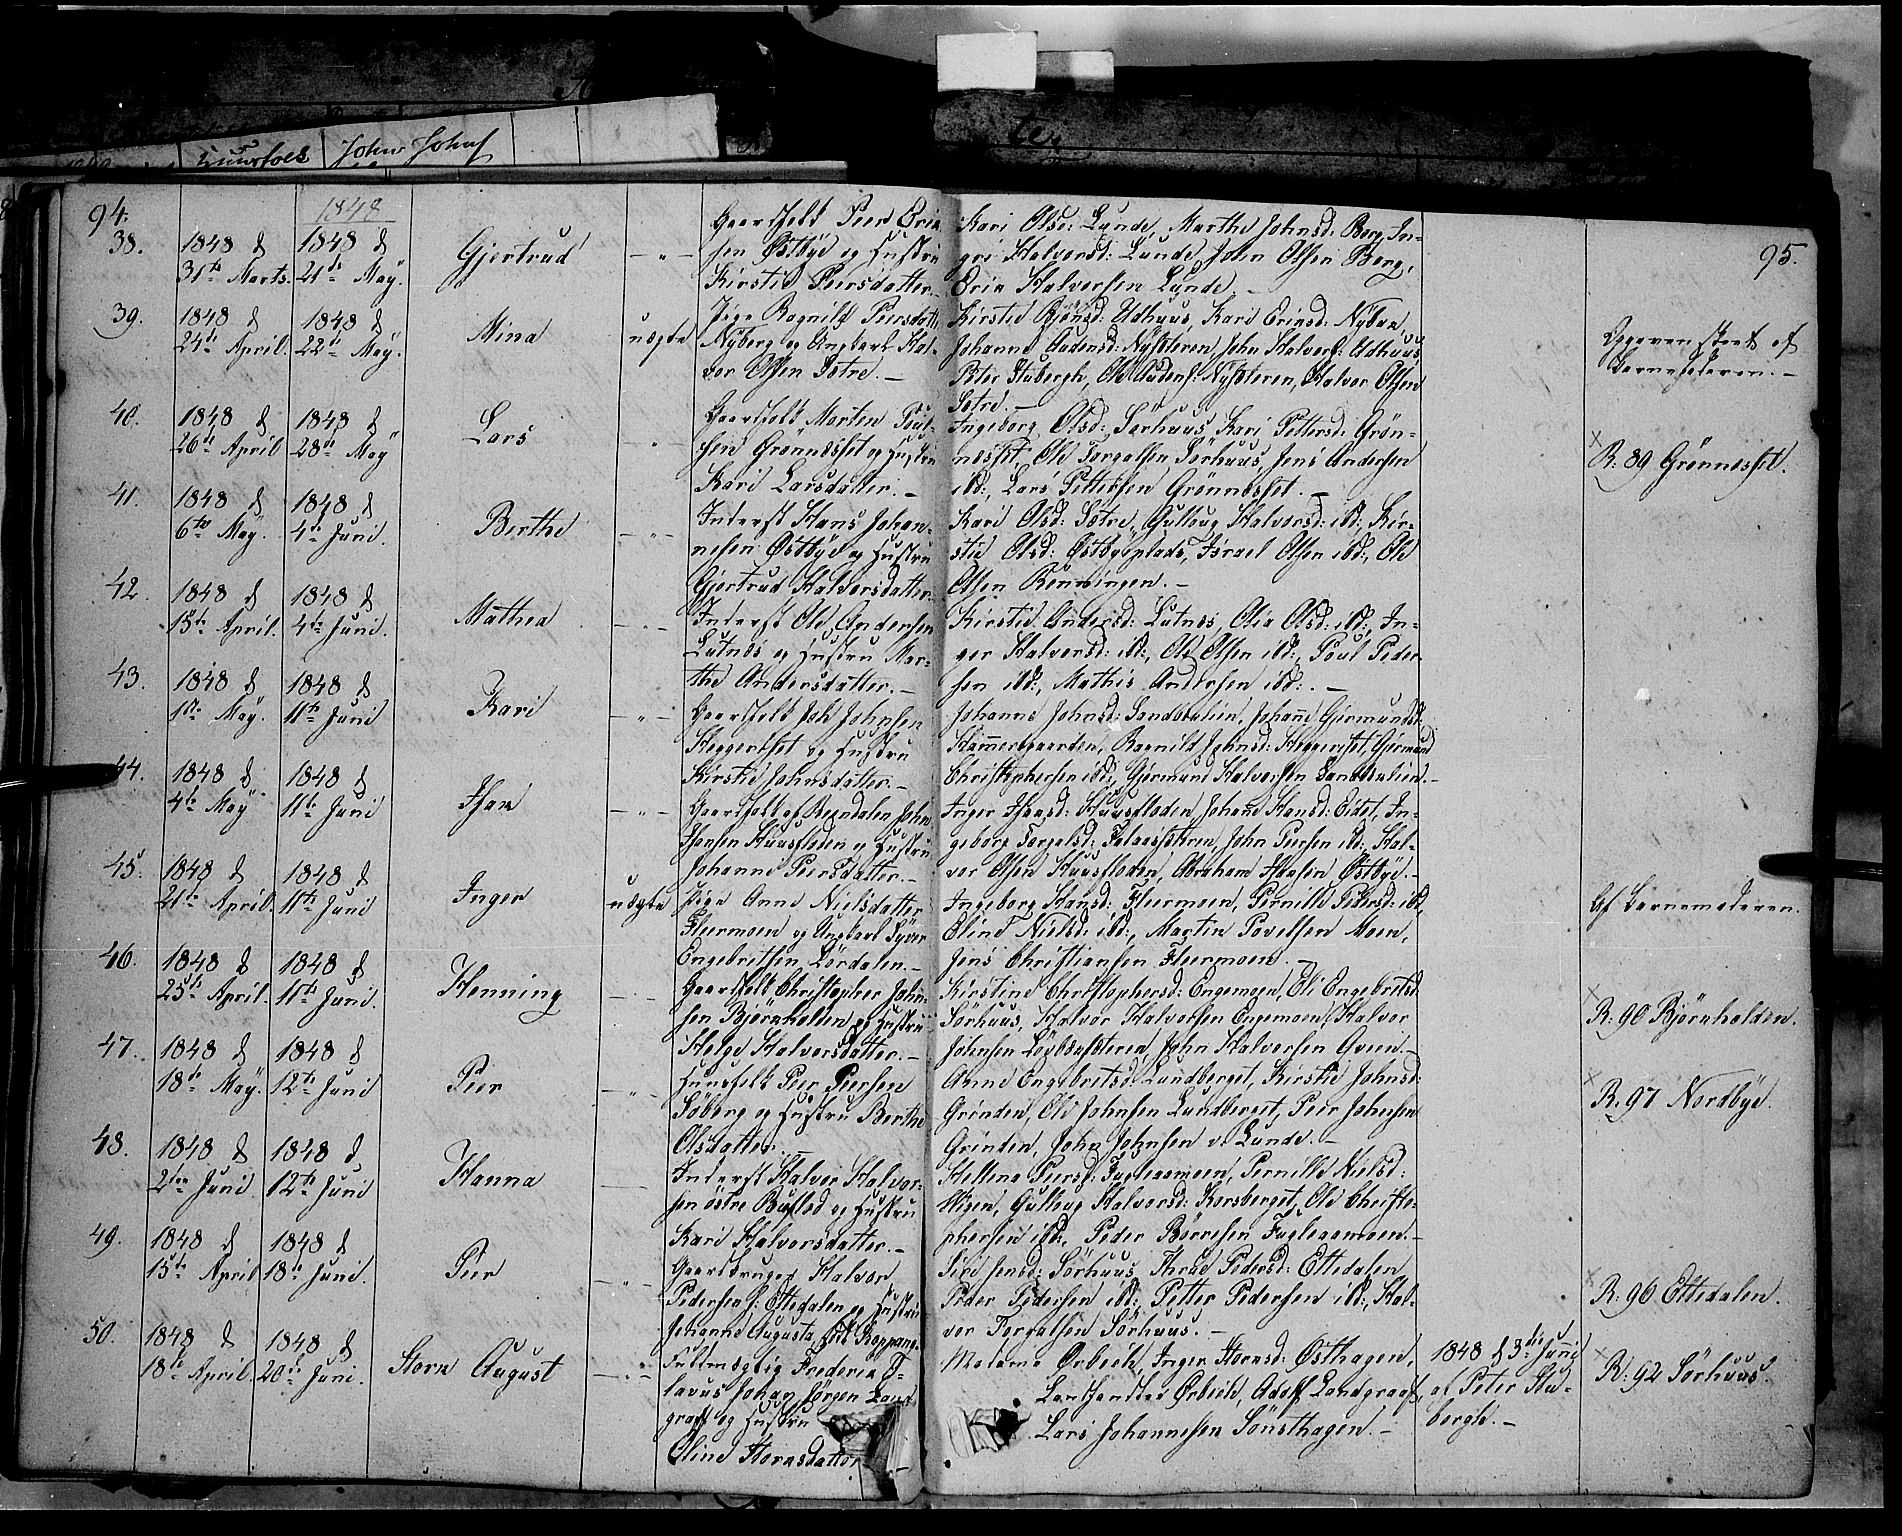 Huusfolk John Johns
94.
1848
95.
38.
1848 d
31te Marts.
1848 d
21de May.
Gjertrud
— " —
Gaardfolk Peer Eric
sen Østbye og Hustru
Kirstie Peersdatter.
Kari Olsd: Lunde, Marthe Johnsd: Berg, In-
gri Halvorsd: Lunde, John Olsen Berg,
Eric Halvorsen Lunde. —
39.
1848 d
24de April.
1848 d
22de May.
Mina
uægte
Pige Ragnild Peersdatter
Nyberg og Ungkarl Hal-
vor Olsen Sætre. —
Kirstie Udhuus, Kari
Johanne Nysæteren, John Halvors: Udhuus,
Peter Stubergh, Ole Nysæteren, Halvor Olsen
Sætre. —
Opgaven skeet af
Barnefaderen. —
40.
1848 d
26de April
1848 d
28de May
Lars
"
Gaardfolk Morten Poul-
sen Grønnæsset og Hustru
Kari Larsdatter. —
Ingeborg Olsd: Sørhuus, Kari Pettersd: Grøn-
nesset, Ole Torgalsen Sørhuus, Jens Andersen
ibd:, Lars Pettersen Grønnæsset. —
R: 89 Grønnesset.
41.
1848 d
6te May.
1848 d
4de Juni.
Berthe
— " —
Inderst Hans Johan-
nesen Østbye og Hustru
Gjertrud Halvorsdatter.
Kari Olsd: Sætre, Gulloug Halvorsd: ibd:, Kir-
stie Olsd: Østbyeplads, Israel Olsen ibd:, Ole
Olsen Rønningen. —
42.
1848 d
15de April.
1848 d
4de Juni.
Mathea
— " —
Inderst Ole Andersen
Lutnæs og Hustru Mar-
the Andersdatter. —
Kirstie Andersd: Lutnes, Olia Olsd: ibd:, In-
ger Halvorsd: ibd:, Ole Olsen ibd:, Poul Peder-
sen ibd:, Mathis Andersen ibd: . —
43.
1848 d
1ste May.
1848 d
11te Juni
Kari
— " —
Gaardfolk Johnsen
Heggeriset og Hustru
Kirstie Johnsdatter. —
Johanne Johnsd: Sandbælien, Johañe Gjermundsd:
Hammersgaarden, Ragnild Johnsd: Heggeriset, Gjermund
Christophersen ibd:, Gjermund Halvorsen Sandbælien. —
44.
1848 d
4de May
1848 d
11te Juni
Than
— " —
Gaardfolk af Reendalen John
Thansen Huusfloden og Hustru
Johanne Peersdatter. —
Inger Thansd: Huusfloden, Johañe Hansd: Eidet, In-
geborg Torgalsd: John Peersen ibd:, Hal-
vor Olsen Huusfloden, Abraham Østbye. —
45.
1848 d
21de April.
1848 d
11te Juni
Inger
uægte
Pige Anne Nielsdatter
Flermoen og Ungkarl Syver
Engebritsen Lørdalen. —
Ingeborg Hansd: Flermoen, Pernille Pedersd: ibd,
Eline Nielsd: ibd:, Martin Povelsen Moen,
Jens Christiansen Flermoen. —
Af Barnemoderen.
46.
1848 d
25de April.
1848 d
11te Juni.
Henning
— " —
Gaardfolk Christopher John-
sen Bjørnholden og Hustru
Helge Halvorsdatter. —
Kirstine Christophersd: Engemoen, Eli Engebretsd:
Sørhuus, Halvor Halvorsen Engemoen, Halvor
Johnsen Løvbersæteren, John Halvorsen Qveen. —
R: 90 Bjørnholden.
47.
1848 d
18de May.
1848 d
12te Juni
Peer
— " —
Huusfolk Peer Peersen
Søberg og Hustru Berthe
Olsdatter. —
Anne Engebritsd: Lundberget, Kirstie Johnsd:
Grinden, Ole Johnsen Lundberget, Peer Johnsen
Grinden, John Johnsen v. Lunde. —
R: 97 Nordbye.
48.
1848 d
2den Juni
1848 d
12te Juni
Hanna
— " —
Inderst Halvor Halvor-
sen østre Bustad og Hustru
Kari Halvorsdatter. —
Hellena Peersd: Fugleaamoen, Pernille Nielsd:
Wigen, Gulloug Halvorsd: Korsberget, Ole Christo-
phersen ibd:, Peder Børresen Fugleaamoen. —
49.
1848 d
15de April
1848 d
18de Juni.
Peer
— " —
Gaardbruger Halvor
Pedersen s: Ettedalen og Hustru
Johanne Augusta født Koppang.
Siri Jensd: Sørhuus, Pedersd: Ettedalen
Peder Pedersen ibd:, Petter Pedersen ibd:, Hal-
vor Torgalsen Sørhuus. —
R: 96 Ettedalen.
50.
1848 d
18de April.
1848 d
20de Juni.
Storm August
— " —
Fuldmægtig Frederic O-
lavus Johan Jørgen Land-
graff og Hustru
Oline Stormsdatter
Madame Ørbech, Inger Stormsd: Østhagen,
Landhandler Ørbech, Adolf Landgraaff,
Lars Johannesen Sønsthagen. —
1848 d 3die Juni
af Peter Stu-
bergh. —
R: 92 Sørhuus.